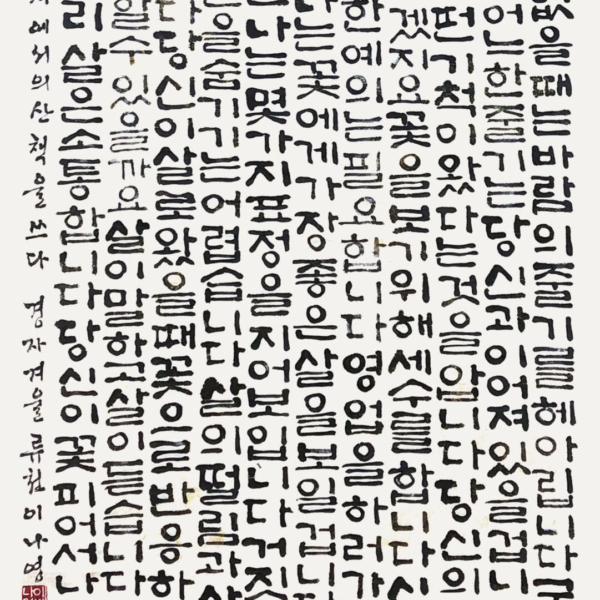 없을때는바람의줄기를헤아립니다
어는한줄기는당신과이어져있을겁니
기척이왔다는것을압니다당신의
겠지요꽃을보기위해세수를합니다시
한예의는필요합니다영업을하러가
나는꽃에게가장좋은살을보일겁니
나는몇가지표정을지어보입니다거
을숨기기는어렵습니다살의떨림과
당신이살로왔을때꽃으로반응하
알수있을까요살이말하고살이듣습니다
리살은소통합니다당신이꽃피어서나
에서의산책을쓰다 경자겨울 이나영